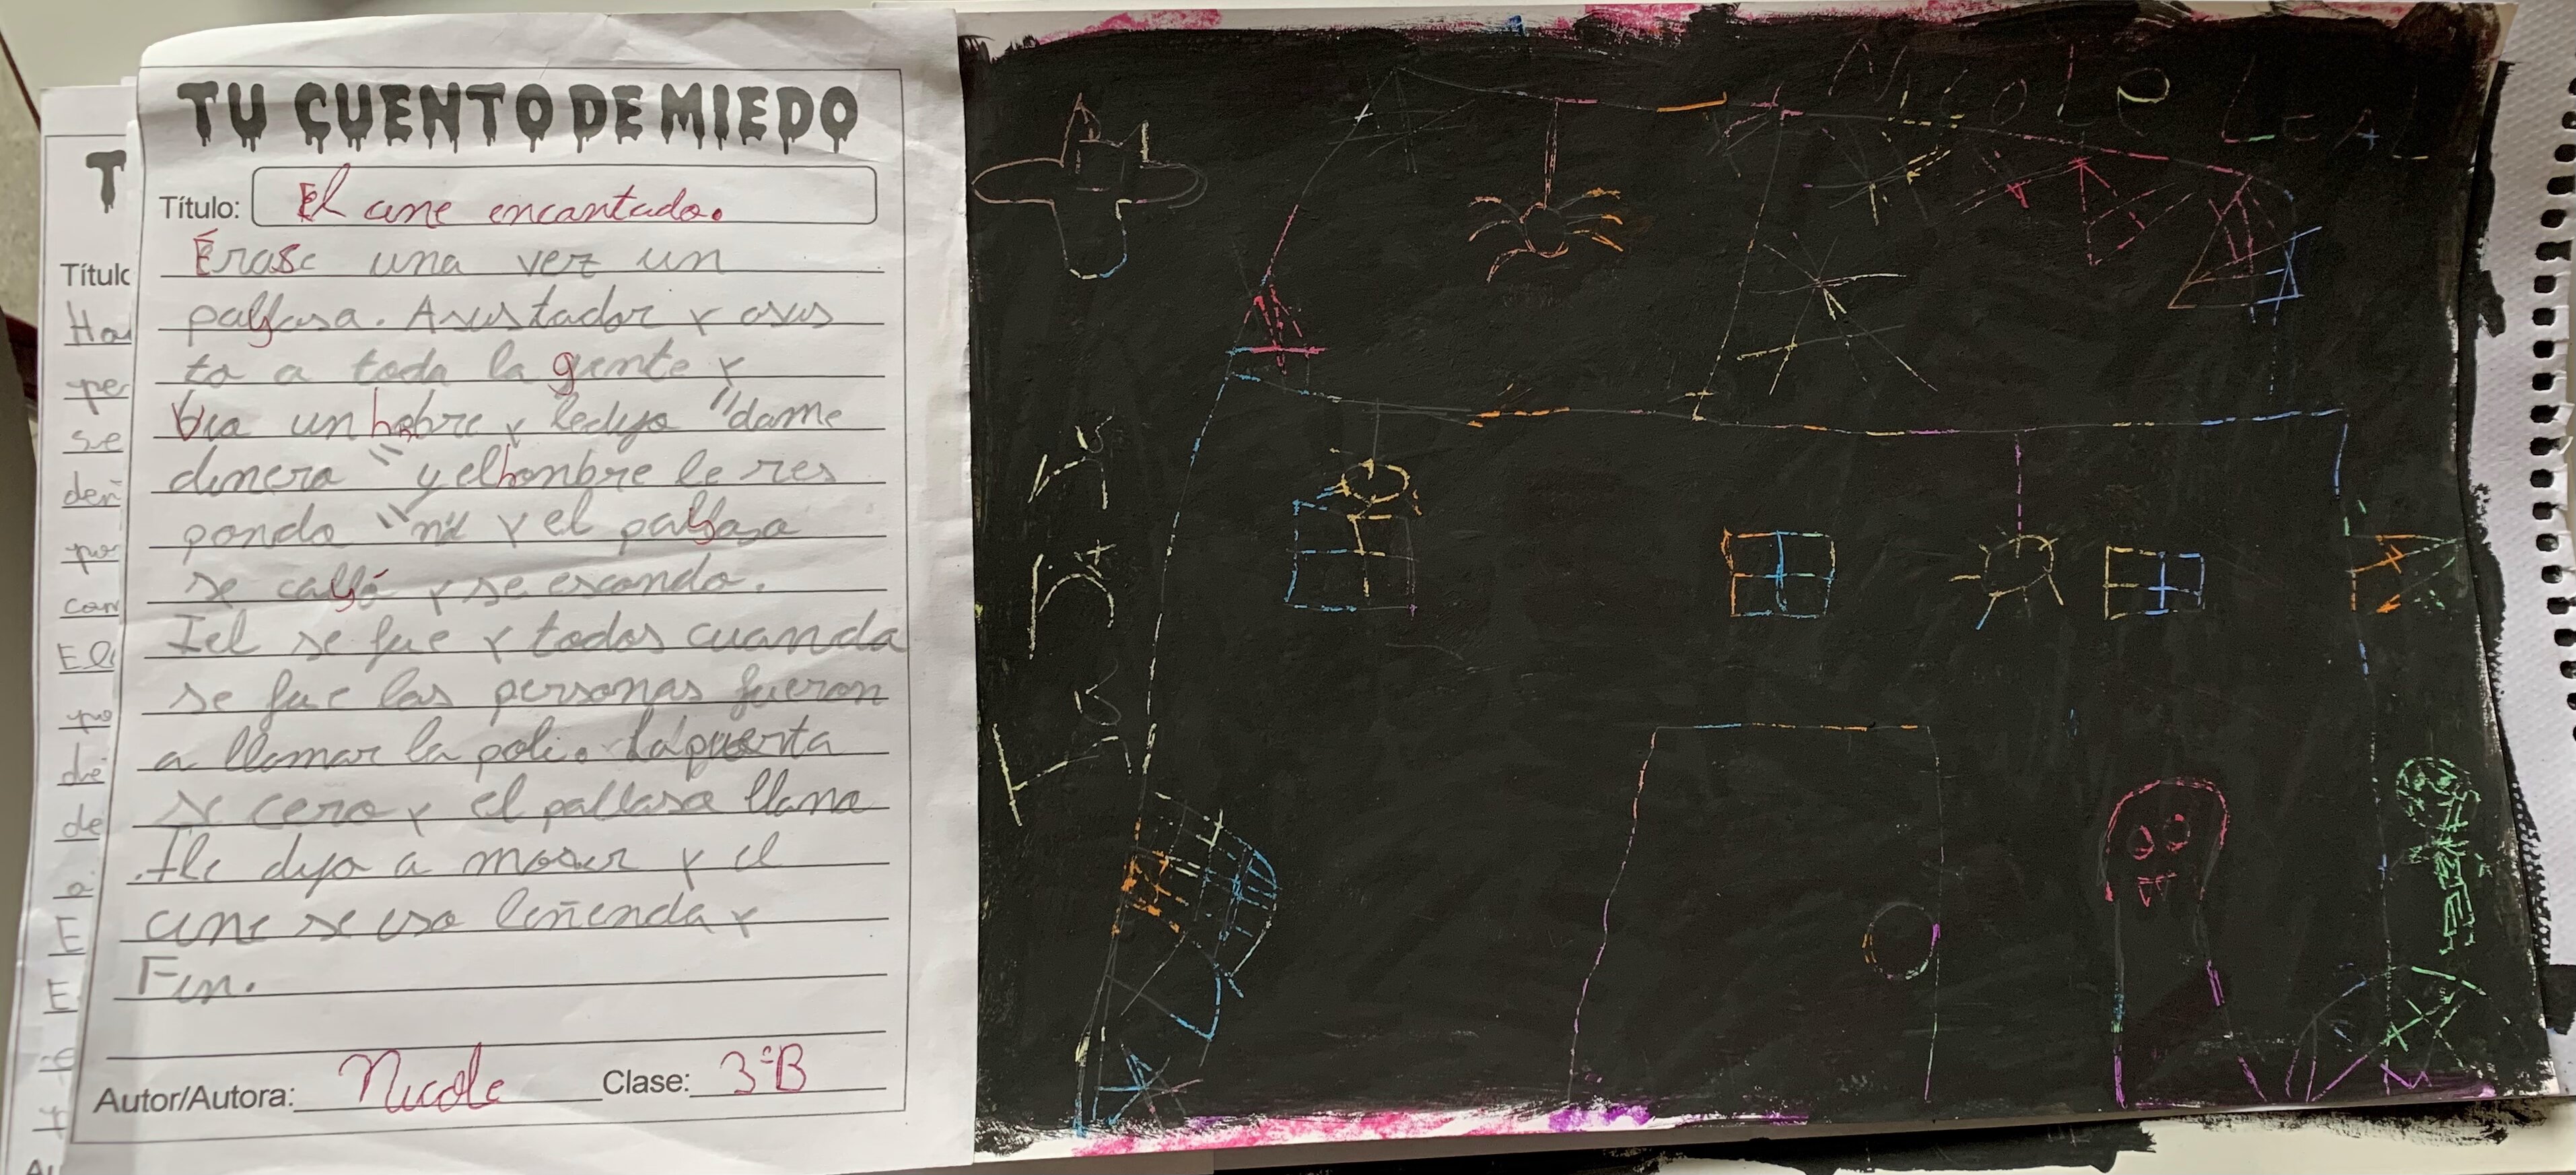 TU CUENTO DE MIEDO
Título: El cine encantado.
Érase una vez un
payaso. Asustador y asus
to a toda la gente y
Via un hobre y ledijo "dame
dinero" y elhombre le res
pondo "no" y el payaso
se cayó y se escondo.
Iel se fue y todos cuando
se fue las personas fueron
a llamar la poli. La puerta
se cero y el pallaso llamo
Ile dijo a moser y el
cine se eso leñenda y
Fin.
Autor/Autora: Nicole Clase: 3ºB
T
Títulc
Ha
pe
se
den
po
con
El
po
de
a
E
E
Nicole Leal